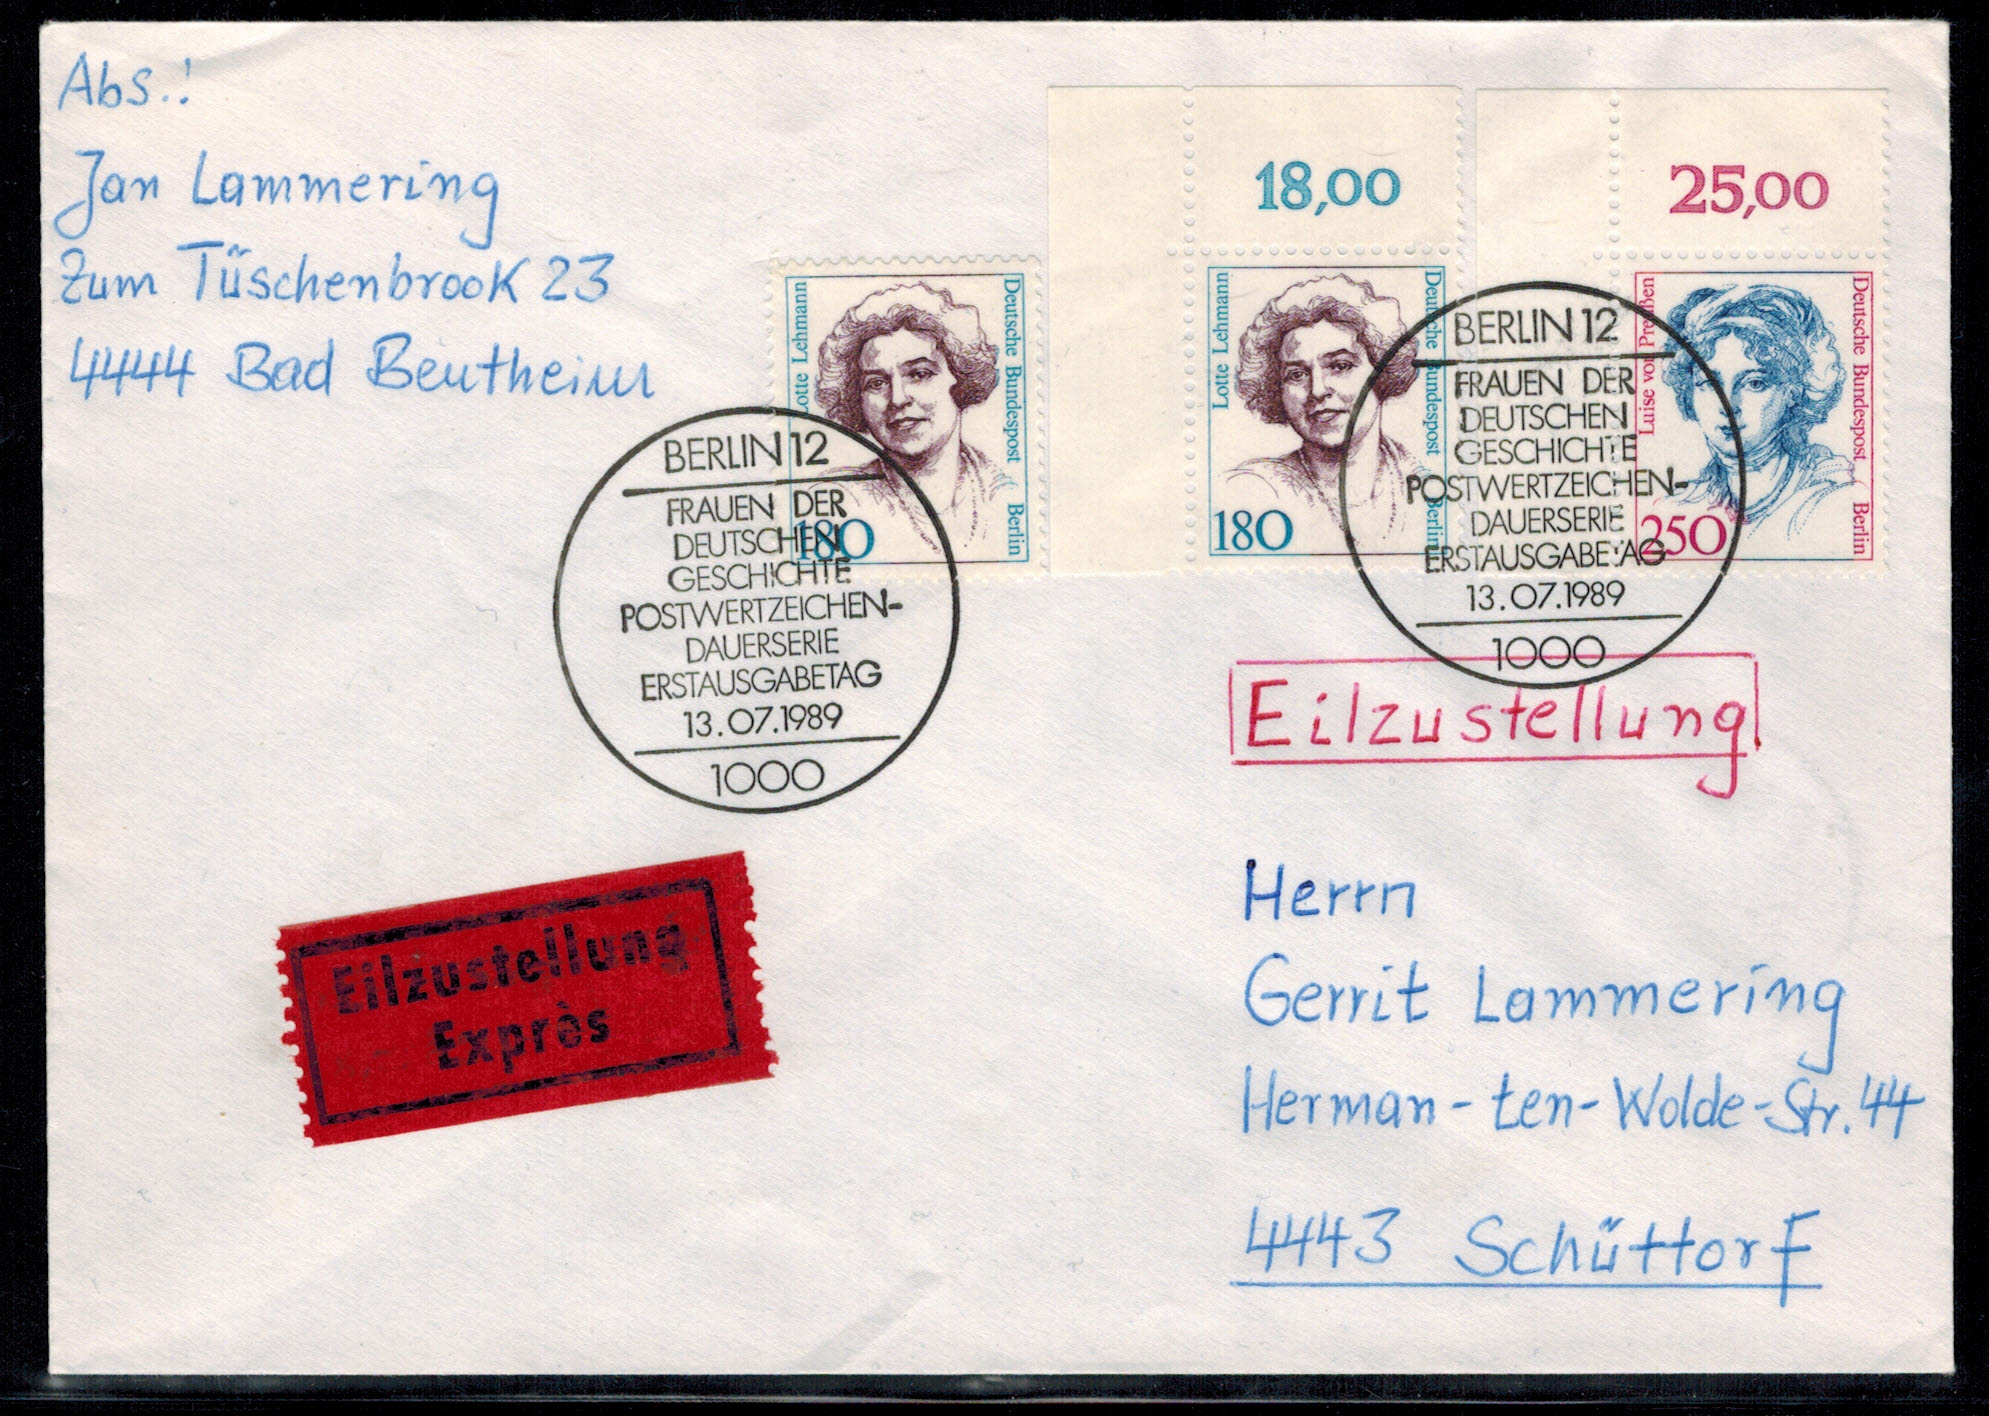 Abs.:
Jan Lammering
Zum Tüschenbrook 23
4444 Bad Bentheim
18,00
25,00
Lotte Lehmann
Deutsche Bundespost Berlin
180
Lotte Lehmann
Deutsche Bundespost Berlin
180
Luise von Preußen
Deutsche Bundespost Berlin
250
BERLIN 12
FRAUEN DER
DEUTSCHEN
GESCHICHTE
POSTWERTZEICHEN-
DAUERSERIE
ERSTAUSGABETAG
13.07.1989
1000
BERLIN 12
FRAUEN DER
DEUTSCHEN
GESCHICHTE
POSTWERTZEICHEN-
DAUERSERIE
ERSTAUSGABETAG
13.07.1989
1000
Eilzustellung
Eilzustellung
Exprès
Herrn
Gerrit Lammering
Herman-ten-Wolde-Str. 44
4443 Schüttorf